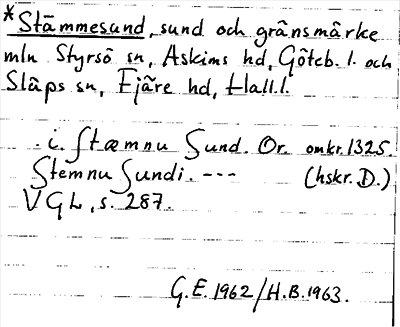 *Stämmesund, sund och gränsmärke
mln Styrsö sn, Askims hd, Göteb. l. och
Släps sn, Fjäre hd, Hall. l.
i. Stæmnu Sund. Or. omkr. 1325.
Stemnu Sundi. --- (hskr. D.)
VGL, s. 287.
G.E. 1962/H.B. 1963.